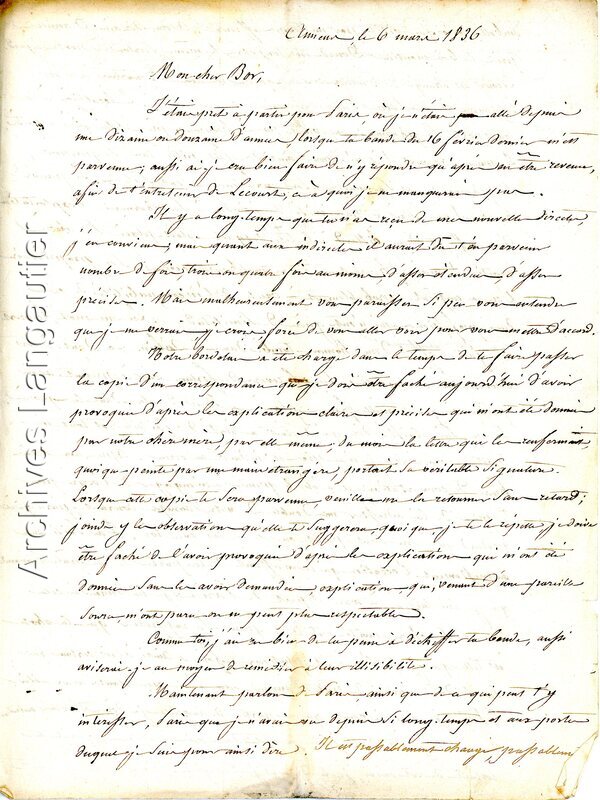 Amiens, le 6 mars 1836
Mon cher Bor,
J'étais prêt à partir pour Paris, où je n'étais allé depuis
une dizaine ou douzaine d'années, lorsque ta bande du 16 février dernier m'est
parvenue; aussi ai-je cru bien faire de n'y répondre qu'après en être revenu,
afin de t'entretenir de Lecourt, ce à quoi je ne manquerai pas.
Il y a long-temps que tu n'as reçu de mes nouvelles directes,
j'en conviens; mais quant aux indirectes il aurait dû t'en parvenir
nombre de fois, trois ou quatre fois au moins, d'assez étendues, d'assez
précises. Mais malheureusement vous paraissez si peu vous entendre
que je me verrai je crois forcé de vous aller voir pour vous mettre d'accord.
Notre bordelais a été chargé dans le temps de te faire passer
la copie d'une correspondance que je dois être faché aujourd'hui d'avoir
provoquée d'après les explications claires et précises qui m'ont été données
par notre chère mère, par elle même, du moins la lettre qui les renfermait,
quoique peinte par une main étrangère, portait sa véritable signature.
Lorsque cette copie te sera parvenue, veuille me la retourner sans retard;
joins y les observations qu'elle te suggerera, quoique, je te le répète, je doive
être faché de l'avoir provoquée d'après les explications qui m'ont été
données sans les avoir demandées, explications qui, venant d'une pareille
source, m'ont paru on ne peut plus respectables.
Comme toi, j'ai eu bien de la peine à déchiffrer ta bande, aussi
aviserai-je au moyen de remédier à leur illisibilité.
Maintenant parlons de Paris, ainsi que de ce qui peut t'y
intéresser, Paris que je n'avais vu depuis si long-temps et aux portes
duquel je suis pour ainsi dire. Il est passablement changé, passablement
Archives Langautier